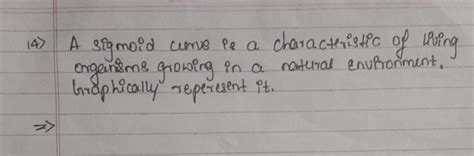 14> A sigmoid curve is a characteristic of living
organisms growing in a natural environment.
Graphically reperesent it.
=>